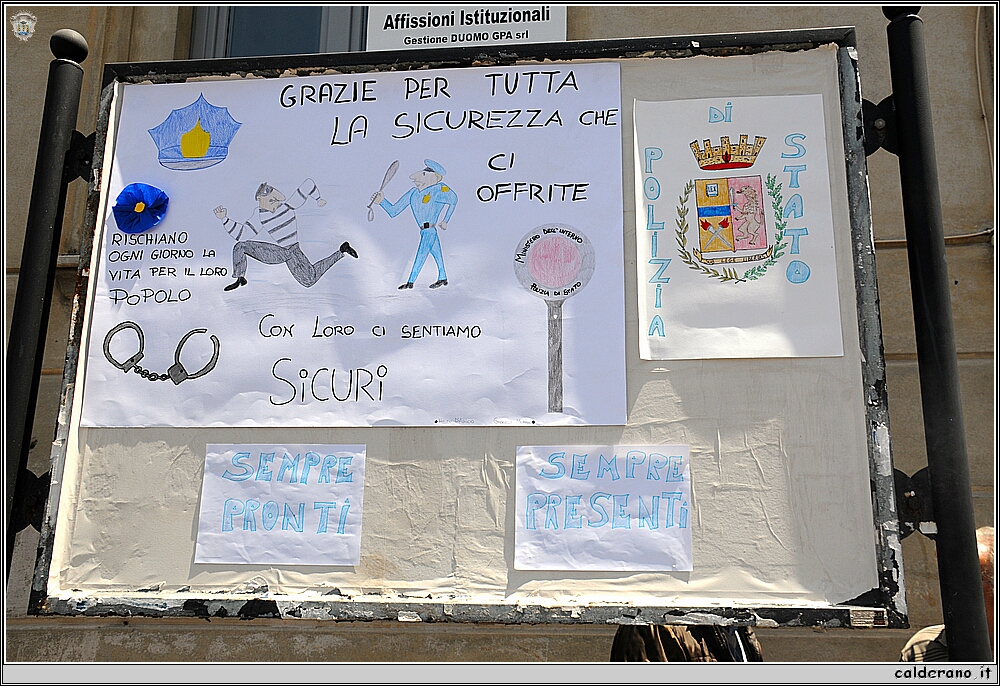 Affissioni Istituzionali
Gestione DUOMO GPA srl
GRAZIE PER TUTTA
LA SICUREZZA CHE
CI
OFFRITE
RISCHIANO
OGNI GIORNO LA
VITA PER IL LORO
POPOLO
MINISTERO DELL'INTERNO
POLIZIA DI STATO
CON LORO CI SENTIAMO
SiCURi
POLIZiA
Di
STATO
SEMPRE
PRONTI
SEMPRE
PRESENTi
calderano.it